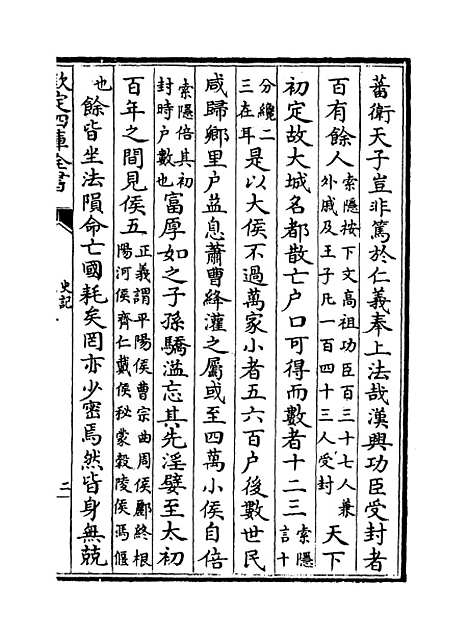 蕃衛天子豈非篤於仁義奉上法哉漢興功臣受封者
百有餘人索隱按下文高祖功臣百三十七人兼外戚及王子凡一百四十三人受封天下
初定故大城名都散亡户口可得而數者十二三索隱言十
分纔二三在耳是以大侯不過萬家小者五六百户後數世民
咸歸鄉里户益息蕭曹絳灌之屬或至四萬小侯自倍
索隱倍其初封時户數也富厚如之子孫驕溢忘其先淫嬖至太初
百年之間見侯五正義謂平陽侯曹宗曲周侯酈終根陽河侯齊仁戴侯秘蒙穀陵侯馮偃
也餘皆坐法隕命亡國耗矣罔亦少密焉然皆身無兢
欽定四庫全書
史記
二